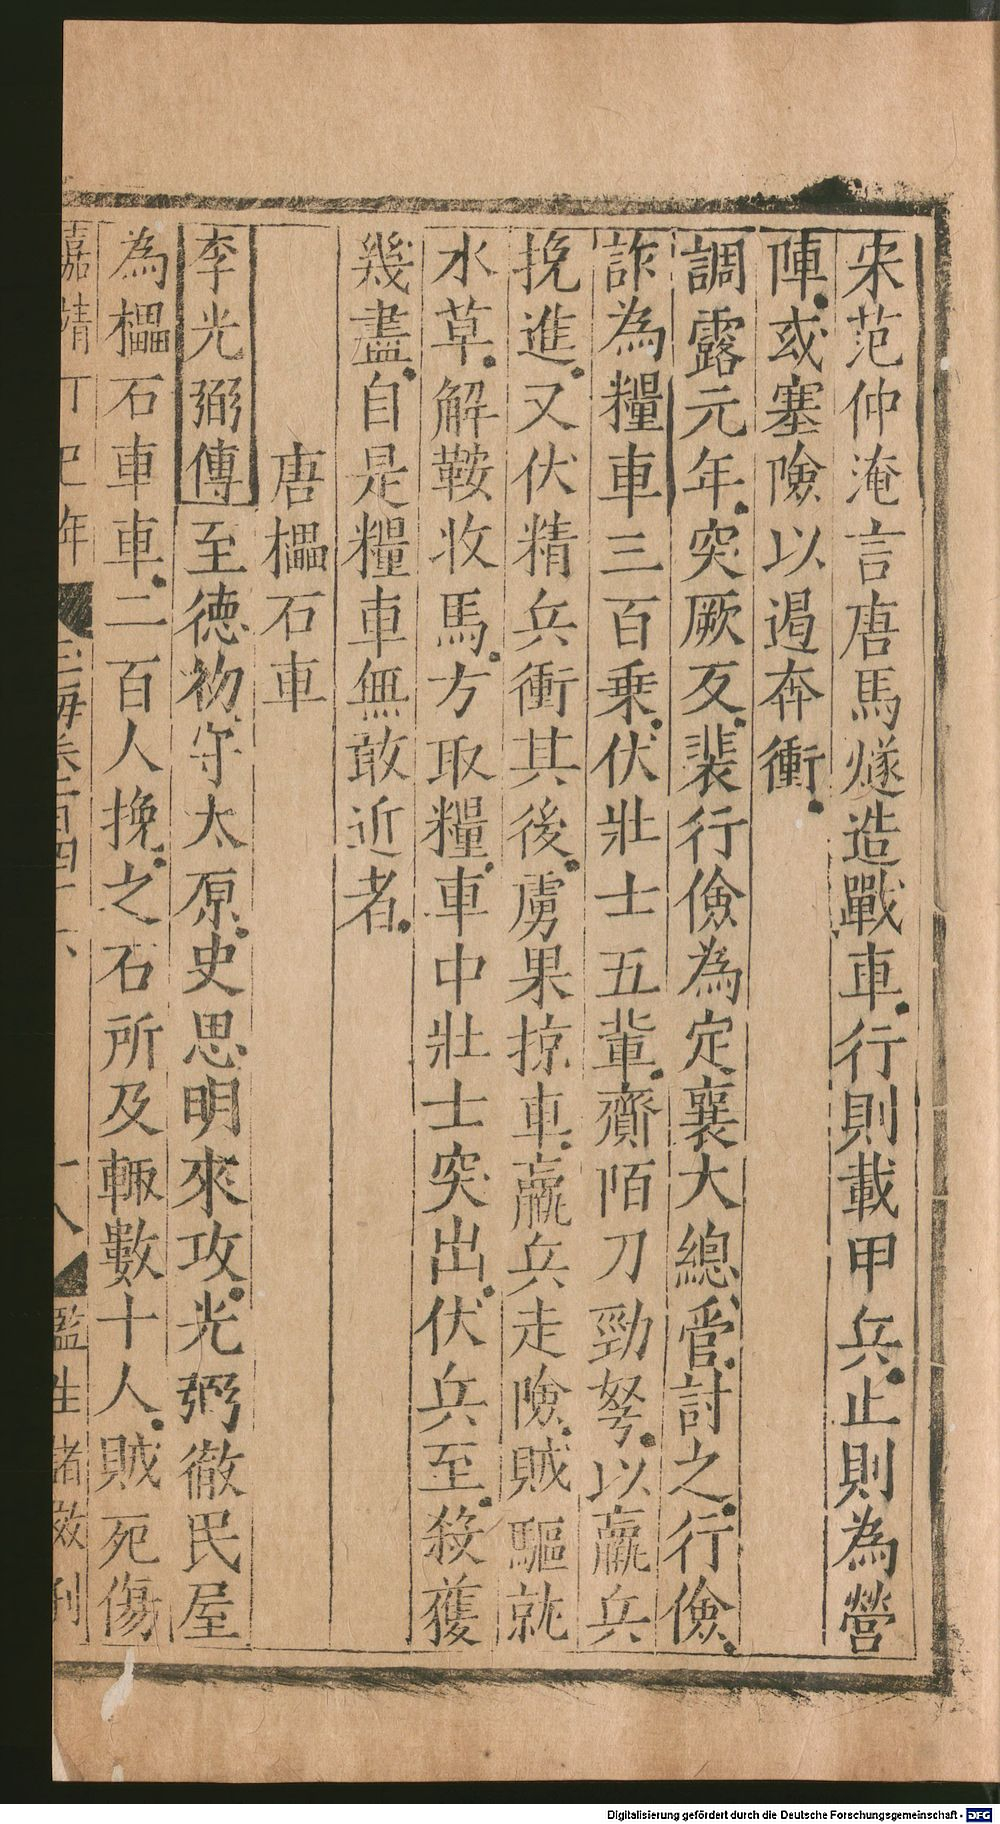 宋范仲淹言唐馬燧造戰車行則載甲兵止則為營
陣或塞險以遏奔衝
調露元年突厥反裴行儉為定襄大總管討之行儉
詐為糧車三百乗伏壯士五輩齎陌刀勁弩以羸兵
挽進又伏精兵衝其後虜果掠車羸兵走險賊驅就
水草解鞍收馬方取糧車中壯士突出伏兵至殺獲
幾盡自是糧車無敢近者
唐櫑石車
李光弼傳至德初守太原史思明來攻光弼徹民屋
為櫑石車車二百人挽之石所及輙數十人賊死傷
嘉靖丁巳年 玉海卷一百四十六 十八 監生諸效刊
Digitalisierung gefördert durch die Deutsche Forschungsgemeinschaft - DFG